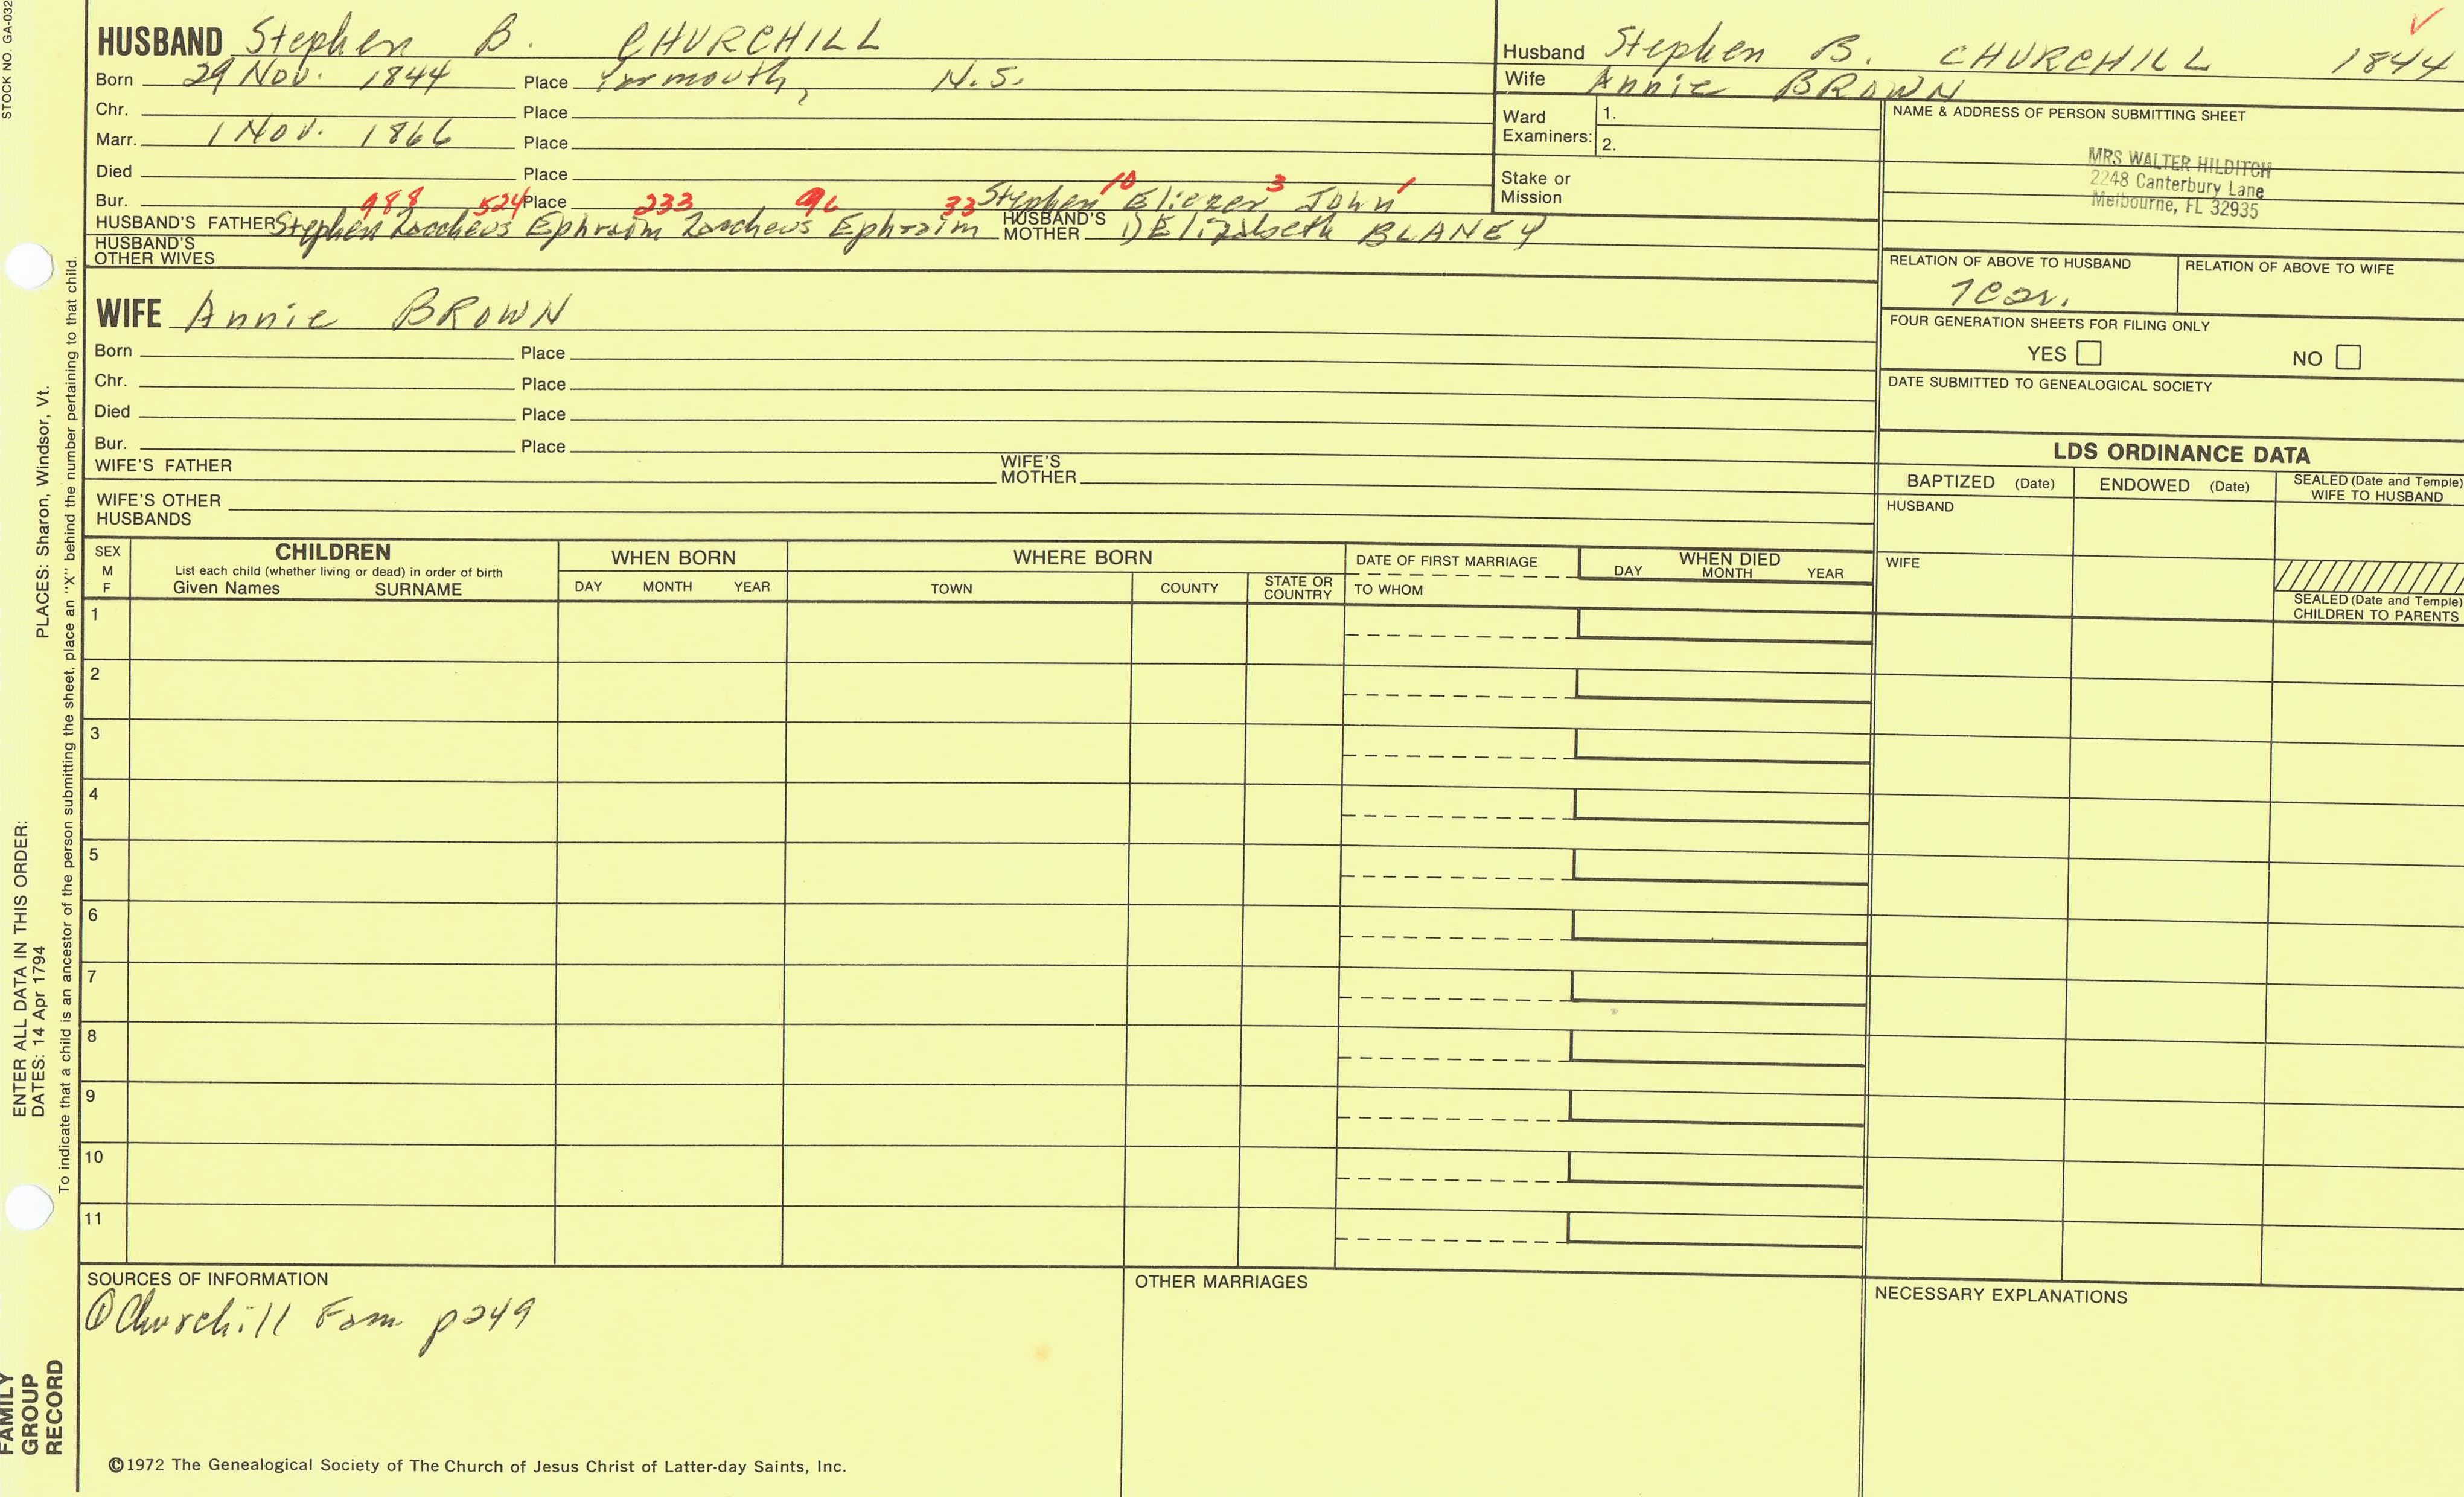 STOCK NO. GA-032
HUSBAND Stephen B. CHURCHILL
Born 29 Nov. 1844 Place Yarmouth, N.S.
Chr. Place
Marr. 1 Nov. 1866 Place
Died Place
Bur. Place
988 524 233 96 33 10 3 1
Stephen Eliezer John
HUSBAND'S FATHER Stephen Zaccheus Ephraim Zaccheus Ephraim HUSBAND'S MOTHER 1) Elizabeth BLANEY
HUSBAND'S OTHER WIVES
Husband Stephen B. CHURCHILL 1844
Wife Annie BROWN
Ward Examiners: 1.
2.
Stake or Mission
NAME & ADDRESS OF PERSON SUBMITTING SHEET
MRS WALTER HILDITCH
2248 Canterbury Lane
Melbourne, FL 32935
RELATION OF ABOVE TO HUSBAND RELATION OF ABOVE TO WIFE
FOUR GENERATION SHEETS FOR FILING ONLY
YES NO
DATE SUBMITTED TO GENEALOGICAL SOCIETY
WIFE Annie BROWN
Born Place
Chr. Place
Died Place
Bur. Place
WIFE'S FATHER WIFE'S MOTHER
WIFE'S OTHER HUSBANDS
LDS ORDINANCE DATA
BAPTIZED (Date) ENDOWED (Date) SEALED (Date and Temple) WIFE TO HUSBAND
HUSBAND
WIFE
SEALED (Date and Temple) CHILDREN TO PARENTS
SEX M F
CHILDREN
List each child (whether living or dead) in order of birth
Given Names SURNAME
WHEN BORN
DAY MONTH YEAR
WHERE BORN
TOWN COUNTY STATE OR COUNTRY
DATE OF FIRST MARRIAGE
TO WHOM
WHEN DIED
DAY MONTH YEAR
1
2
3
4
5
6
7
8
9
10
11
SOURCES OF INFORMATION
① Churchill Fam. p249
OTHER MARRIAGES
NECESSARY EXPLANATIONS
©1972 The Genealogical Society of The Church of Jesus Christ of Latter-day Saints, Inc.
FAMILY GROUP RECORD
ENTER ALL DATA IN THIS ORDER:
DATES: 14 Apr 1794
PLACES: Sharon, Windsor, Vt.
To indicate that a child is an ancestor of the person submitting the sheet, place an "X" behind the number pertaining to that child.